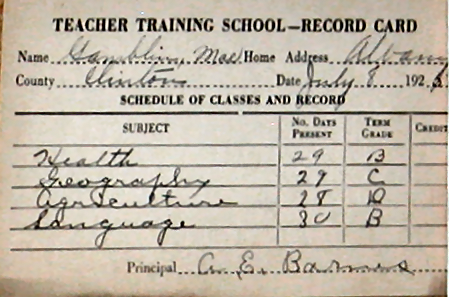 TEACHER TRAINING SCHOOL—RECORD CARD
Name Gamblin, Mae Home Address Albany
County Clinton Date July 8 192
SCHEDULE OF CLASSES AND RECORD
SUBJECT No. DAYS PRESENT TERM GRADE CREDIT
Health 29 B
Geography 29 C
Agriculture 28 D
Language 30 B
Principal A. E. Barnes